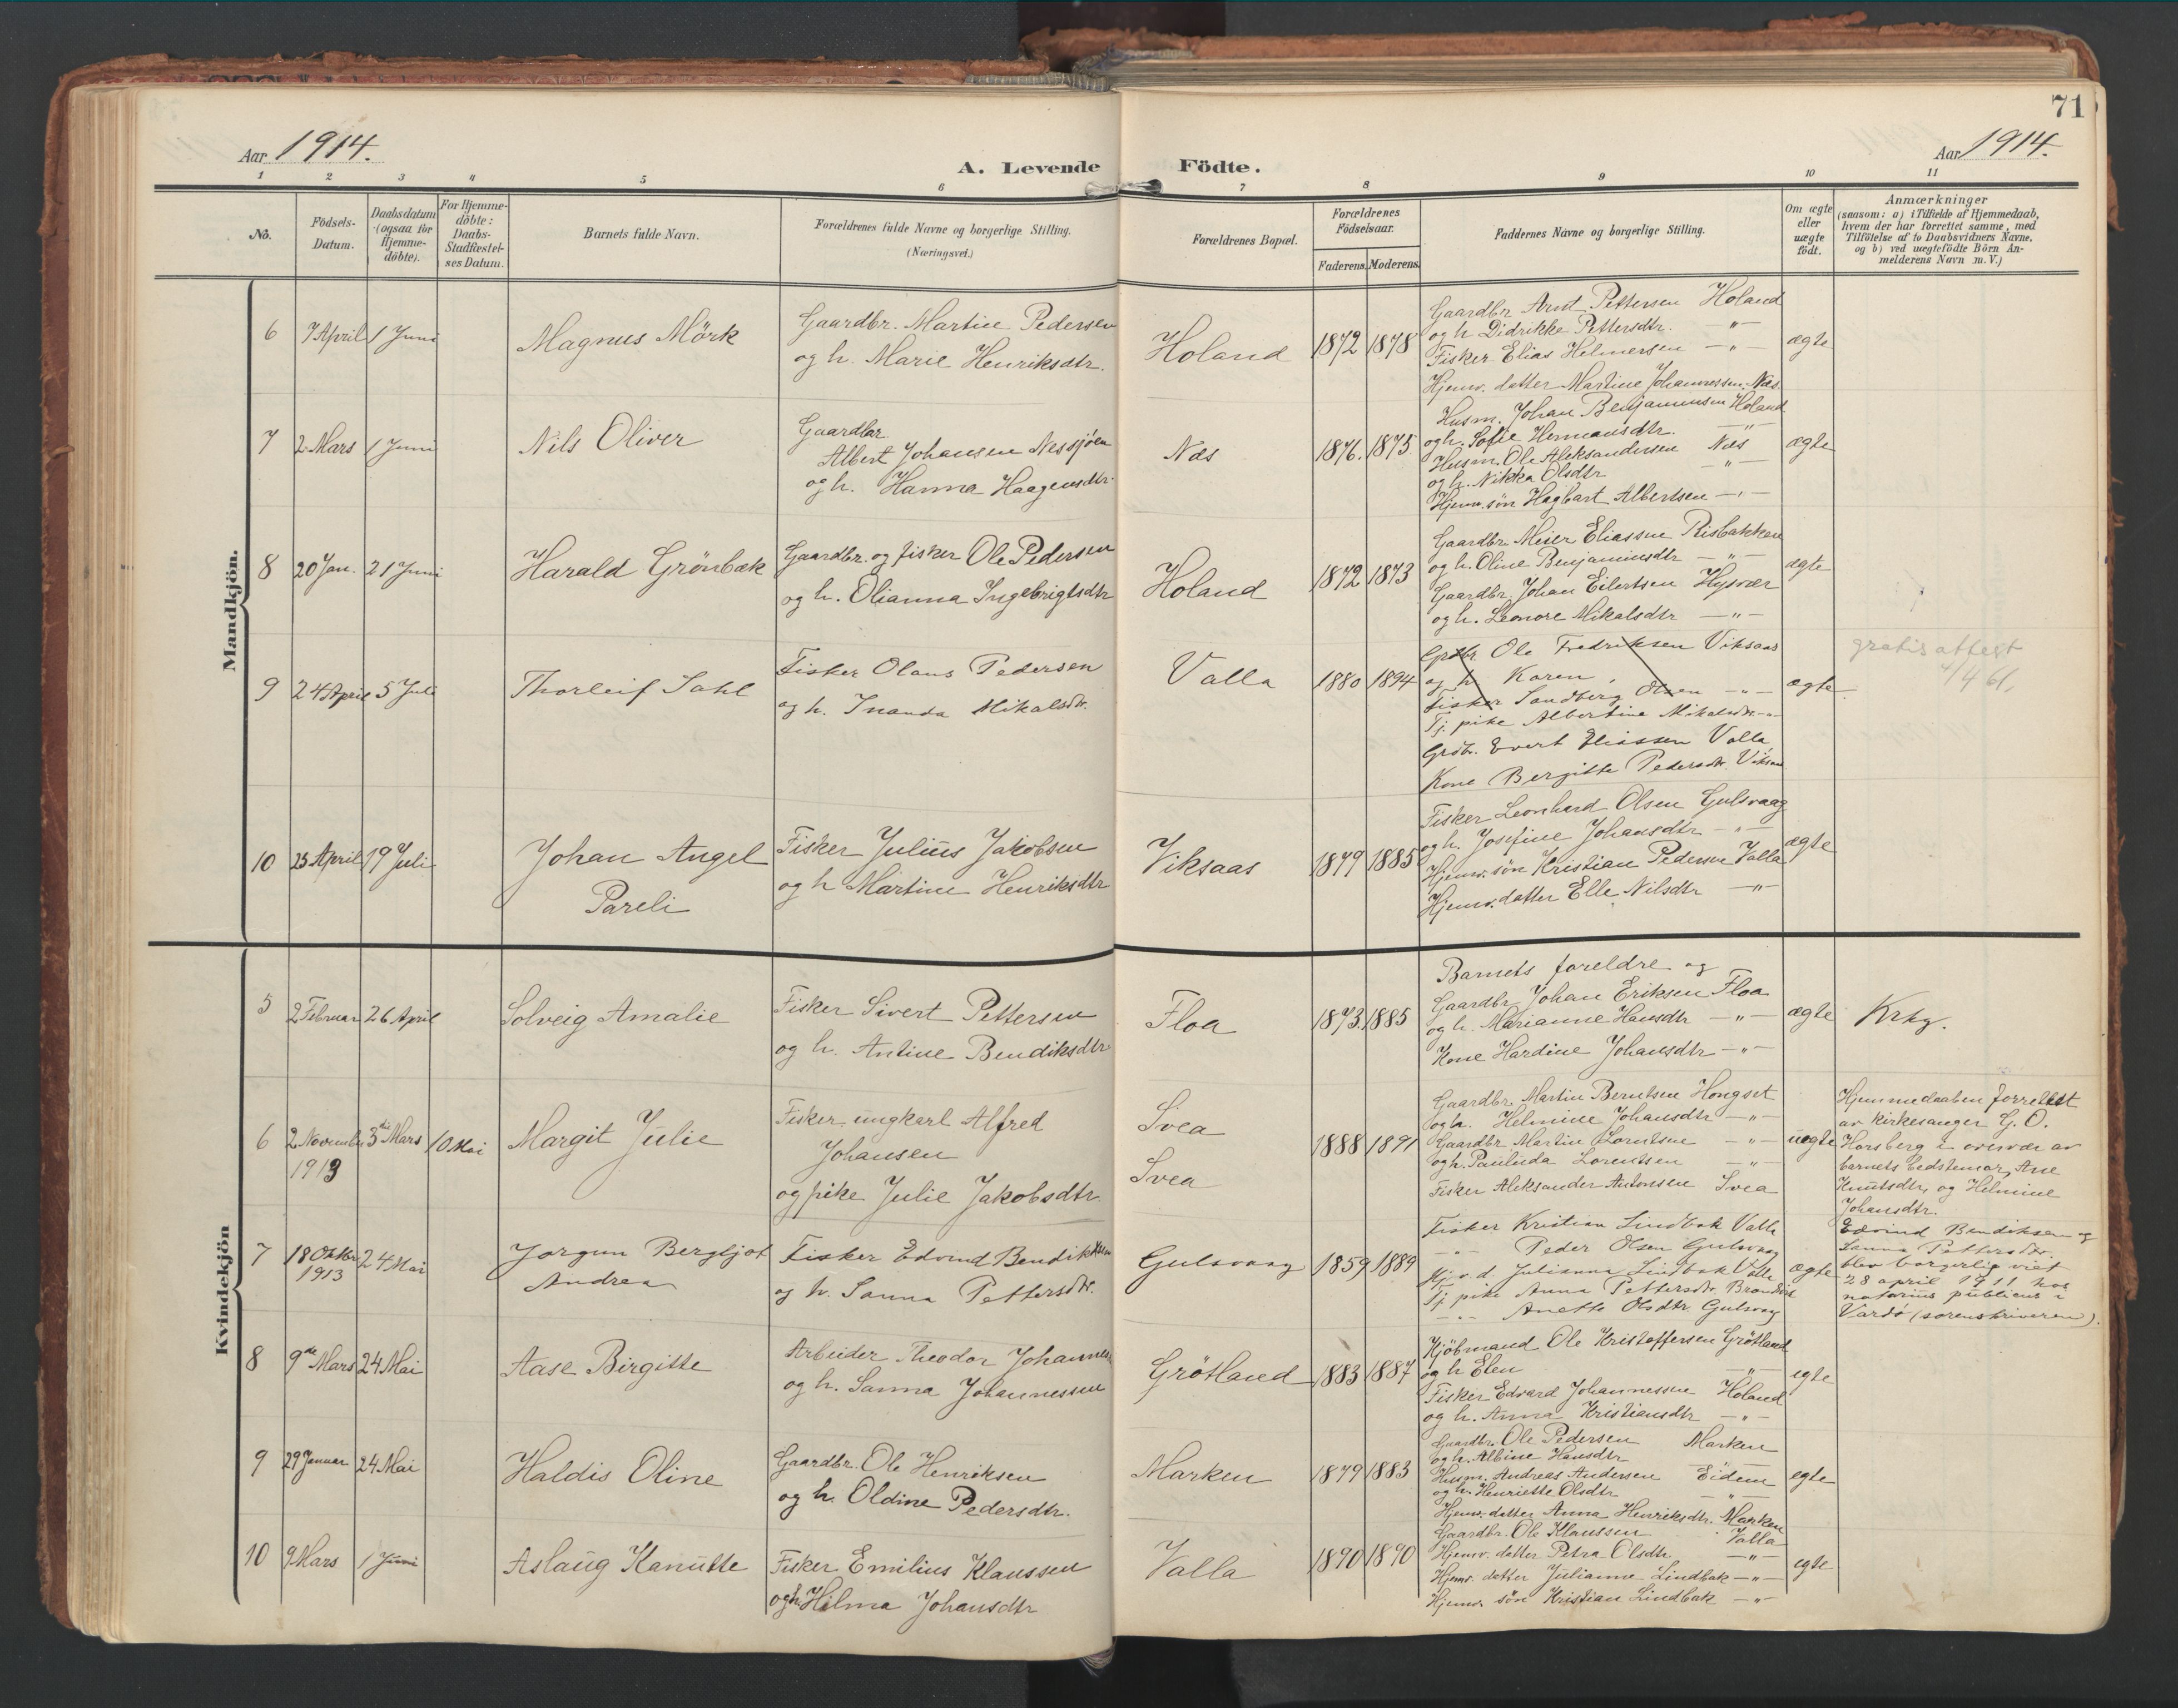 71
Aar 1914.
A. Levende Födte.
Aar 1914.
1 2 3 4 5 6 7 8 9 10 11
No.
Födsels-
Datum.
Daabsdatum
(ogsaa for
Hjemme-
döbte).
For Hjemme-
döbte:
Daabs-
Stadfæstel-
ses Datum.
Barnets fulde Navn.
Forældrenes fulde Navne og borgerlige Stilling.
(Næringsvei.)
Forældrenes Bopæl.
Forældrenes
Födselsaar.
Faderens. Moderens.
Faddernes Navne og borgerlige Stilling.
Om ægte
eller
uægte
födt.
Anmærkninger
(saasom: a) i Tilfælde af Hjemmedaab,
hvem der har forrettet samme, med
Tilföielse af to Daabsvidners Navne,
og b) ved uægtefödte Börn An-
melderens Navn m. V.)
Mandkjön.
6 7 April 1 Juni
Magnus Mörk
Gaardbr. Martin Pedersen
og h. Marie Henriksdtr.
Holand
1872 1878
Gaardbr Arnt Pettersen Holand
og h Didrikke Pettersdtr. — " —
Fisker Elias Helmersen — " —
Hjemv. datter Martine Johannessen Næs.
ægte
7 2 Mars 1 Juni
Nils Oliver
Gaardbr.
Albert Johansen Nessjöen
og h. Hanna Haagensdtr.
Næs
1876. 1875
Husm. Johan Benjaminsen Holand
og h. Sofie Hermansdtr. — " —
Husm. Ole Aleksandersen Næs
og h. Nikka Olsdtr — " —
Hjemv. sön Hagbart Albertsen — " —
ægte
8 20 Jan. 21 Juni
Harald Grönbæk
Gaardbr. og fisker Ole Pedersen
og h. Olianna Ingebrigtsdtr
Holand
1872 1873
Gaardbr. Meier Eliassen Risbakken
og h. Oline Benjaminsdtr — " —
Gaardbr. Johan Eilertsen Hysvær
og h. Leonore Mikalsdtr — " —
ægte
9 24 April 5 Juli
Thorleif Sahl
Fisker Olaus Pedersen
og h. Inanda Mikalsdtr.
Valla
1880 1894
Grdbr. Ole Fredriksen Viksaas
og h. Karen "
Fisker Sandberg Olsen — " —
Tj. pike Albertine Mikalsdtr. — " —
Grdbr. Evert Eliassen Valla
Kone Bergitte Pedersdtr. Viksaas
ægte
gratis attest
4/4 61.
10 25 April 19 Juli
Johan Angel
Pareli
Fisker Julius Jakobsen
og h Martine Henriksdtr
Viksaas
1879 1885
Fisker Leonhard Olsen Gulsvaag
og h. Josefine Johansdtr — " —
Hjemv. sön Kristian Pedersen Valla
Hjemv. datter Elle Nilsdtr — " —
ægte
Kvindekjön
5 2 Februar 26 April
Solveig Amalie
Fisker Sivert Pettersen
og h. Antine Bendiksdtr
Floa
1873. 1885
Barnets foreldre og
Gaardbr Johan Eriksen Floa
og h. Marianne Hansdtr — " —
Kone Hardine Johansdtr — " —
ægte
Krkg.
6 2 November 3die Mars 10 Mai
1913
Margit Julie
Fisker ungkarl Alfred
Johansen
og pike Julie Jakobsdtr.
Svea
Svea
1888 1891
Gaardbr. Martin Berntsen Hongset
og h. Helmine Johansdtr — " —
Gaardbr. Martin Lorentsen — " —
og h. Paulinda Lorentsen — " —
Fisker Aleksander Antonsen Svea
uegte
Hjemmedaaben forrettet
av kirkesanger G. O.
Horsberg i overvær av
barnets bedstemor, Ane
Knutsdtr, og Helmine
Johansdtr.
7 18 Oktbr 24 Mai
1913
Jorgun Bergljot
Andrea
Fisker Edvind Bendiksen
og h. Sanna Pettersdtr.
Gulsvaag
1859 1889
Fisker Kristian Lindbak Valla
— " — Peder Olsen Gulsvaag
Hj. v. d. Julianna Lindbak Valla
Tj. pike Anna Pettersdtr.
— " — Anette Olsdtr Gulsvaag
ægte
Edvind Bendiksen og
Sanna Pettersdtr.
blev borgerlig viet
28 april 1911 hos
notarius publicus i
Vardö (sorenskriveren).
8 9de Mars 24 Mai
Aase Birgitte
Arbeider Theodor Johannes
og h. Sanna Johannessen
Grötland
1883 1887
Kjöbmand Ole Kristoffersen Grötland
og h Elen — " —
Fisker Edvard Johannessen Holand
og h. Anna Kristiansdtr — " —
egte
9 29 Januar 24 Mai
Haldis Oline
Gaardbr. Ole Henriksen
og h. Oldine Pedersdtr.
Marken
1879 1883
Gaardbr. Ole Pedersen Marken
og h. Albine Hansdtr —
Husm. Andreas Andersen Eidem
og h. Henriette Olsdtr — " —
Hjemv. datter Anna Henriksdtr. Marken
egte
10 9 Mars 1 Juni
Aslaug Kanutte
Fisker Emilius Klaussen
og h. Hilma Johansdtr
Valla
1890 1890
Gaardbr. Ole Klaussen Valla
Hjemv. datter Petra Olsdtr. — " —
Hjemv. datter Julianne Lindbak — " —
Hjemv. sön Kristian Lindbak — " —
egte